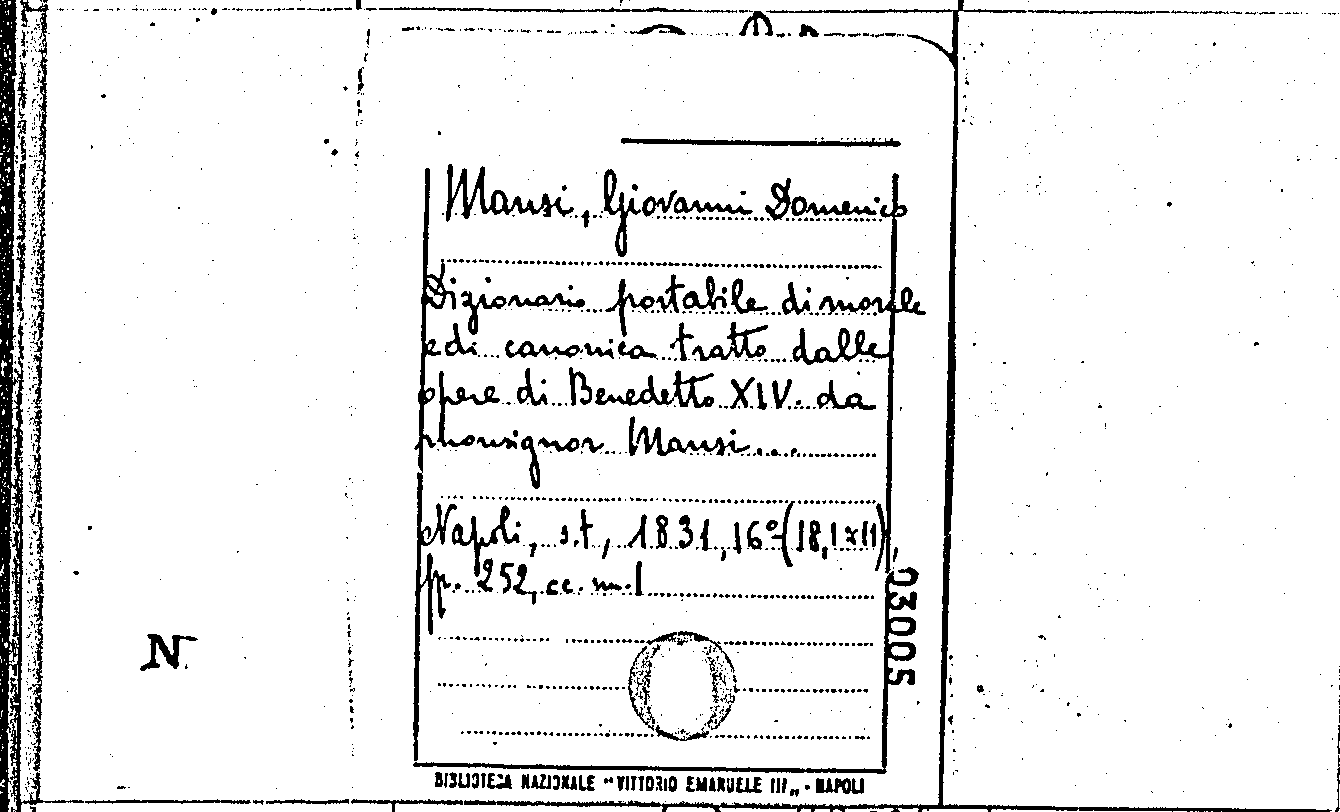 Mansi, Giovanni Domenico
Dizionario portabile di morale
e di canonica tratto dalle
opere di Benedetto XIV. da
monsignor Mansi...
Napoli, s.t, 1831, 16º (18,1x11)
pp. 252, cc. m. 1
03005
N
BIBLIOTECA NAZIONALE "VITTORIO EMANUELE III„ - NAPOLI